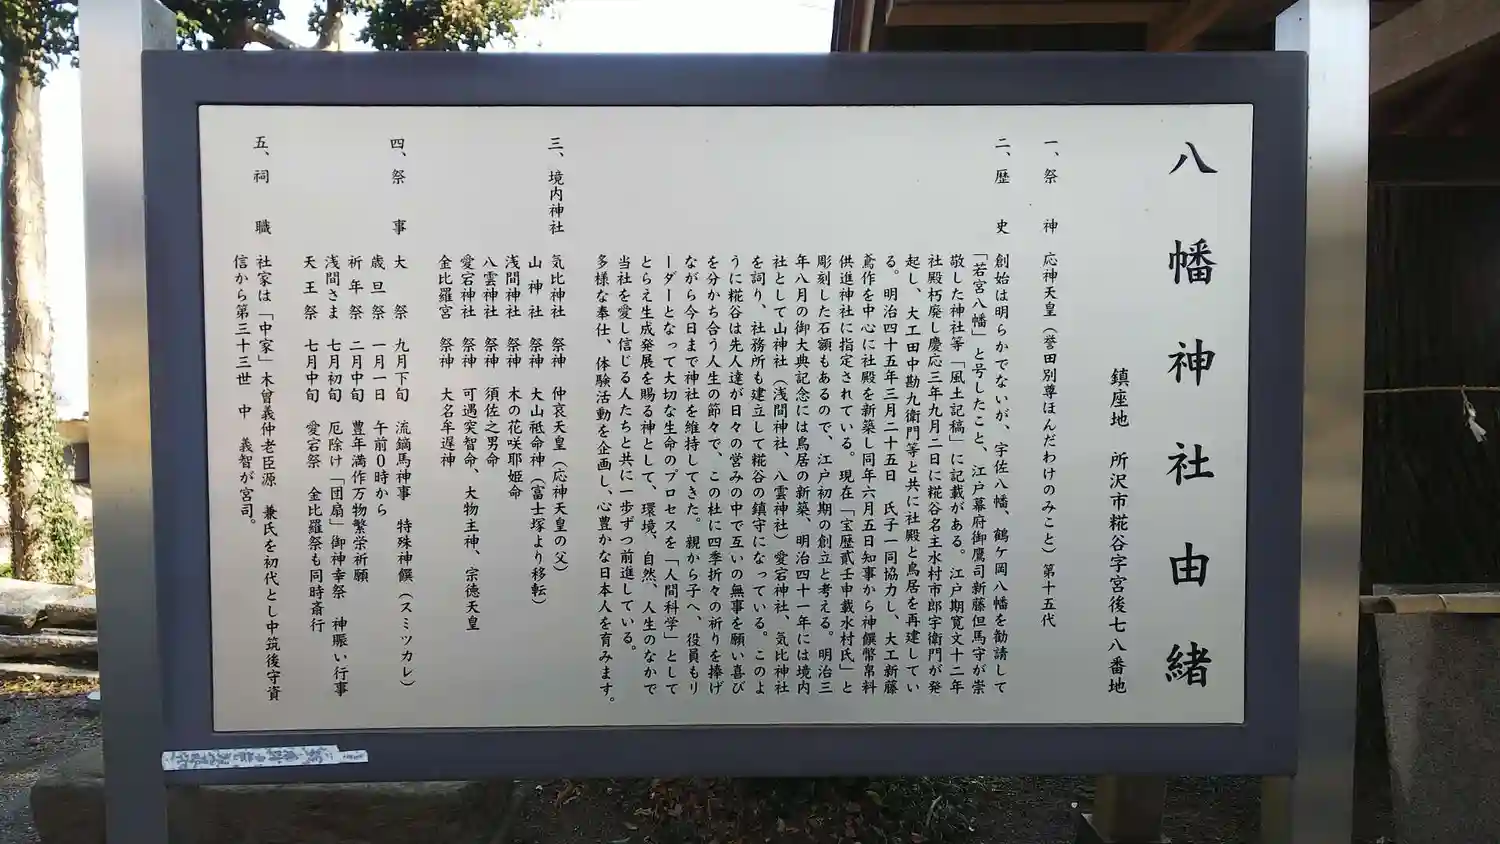 八幡神社由緒
鎮座地 所沢市糀谷字宮後七八番地
一、祭神 応神天皇（誉田別尊ほんだわけのみこと）第十五代
二、歴史 創始は明らかでないが、宇佐八幡、鶴ヶ岡八幡を勧請して
「若宮八幡」と号したこと、江戸幕府御鷹司新藤但馬守が崇
敬した神社等「風土記稿」に記載がある。江戸期寛文十二年
社殿朽廃し慶応三年九月二日に糀谷名主水村市郎宇衛門が発
起し、大工田中勘九衛門等と共に社殿と鳥居を再建してい
る。明治四十五年三月二十五日 氏子一同協力し、大工新藤
鳶作を中心に社殿を新築し同年六月五日知事から神饌幣帛料
供進神社に指定されている。現在「宝歴貳壬申載水村氏」と
彫刻した石額もあるので、江戸初期の創立と考える。明治三
年八月の御大典記念には鳥居の新築、明治四十一年には境内
社として山神社（浅間神社、八雲神社）愛宕神社、気比神社
を詞り、社務所も建立して糀谷の鎮守になっている。このよ
うに糀谷は先人達が日々の営みの中で互いの無事を願い喜び
を分かち合う人生の節々で、この杜に四季折々の祈りを捧げ
ながら今日まで神社を維持してきた。親から子へ、役員もリ
ーダーとなって大切な生命のプロセスを「人間科学」として
とらえ生成発展を賜る神として、環境、自然、人生のなかで
当社を愛し信じる人たちと共に一歩ずつ前進している。
多様な奉仕、体験活動を企画し、心豊かな日本人を育みます。
三、境内神社 気比神社 祭神 仲哀天皇（応神天皇の父）
山神社 祭神 大山祗命神（富士塚より移転）
浅間神社 祭神 木の花咲耶姫命
八雲神社 祭神 須佐之男命
愛宕神社 祭神 可遇突智命、大物主神、宗徳天皇
金比羅宮 祭神 大名牟遅神
四、祭事 大祭 九月下旬 流鏑馬神事 特殊神饌（スミツカレ）
歳旦祭 一月一日 午前０時から
祈年祭 二月中旬 豊年満作万物繁栄祈願
浅間さま 七月初旬 厄除け「団扇」御神幸祭 神賑い行事
天王祭 七月中旬 愛宕祭 金比羅祭も同時斎行
五、祠職 社家は「中家」木曽義仲老臣源 兼氏を初代とし中筑後守資
信から第三十三世 中 義智が宮司。